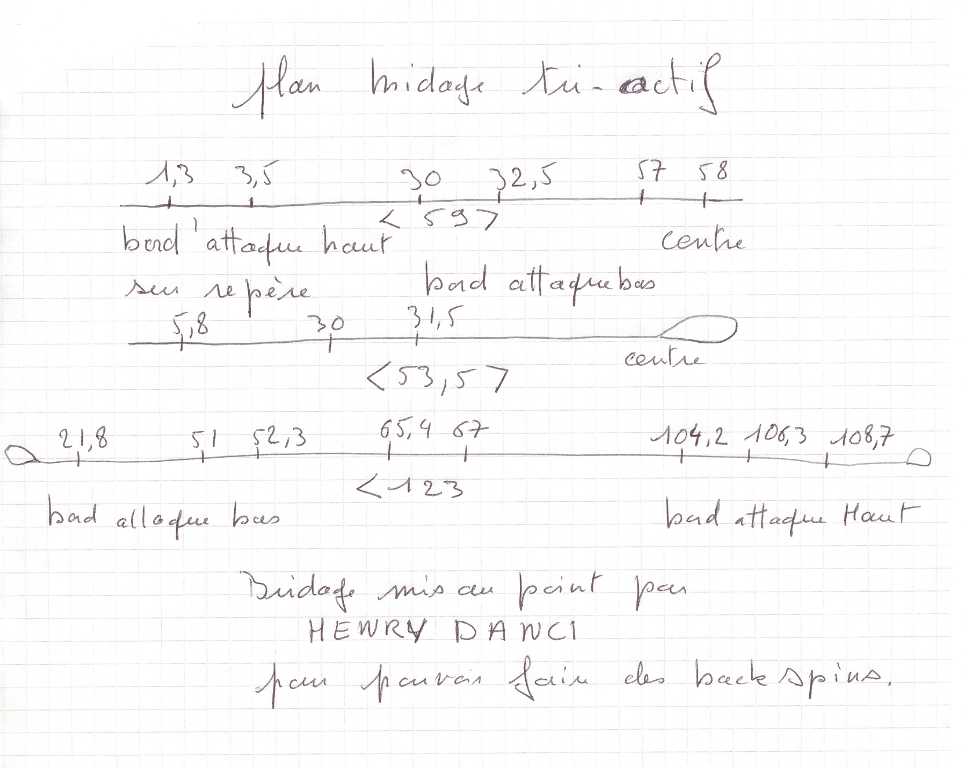 plan bridage tri-actif
1,3 3,5 30 32,5 57 58
< 59 >
bord d'attaque haut centre
sur repère bord attaque bas
5,8 30 31,5
centre
<53,5>
21,8 51 52,3 65,4 67 104,2 106,3 108,7
<123
bord attaque bas bord attaque Haut
Bridage mis au point par
HENRY DANCI
pour pouvoir faire des back spins.